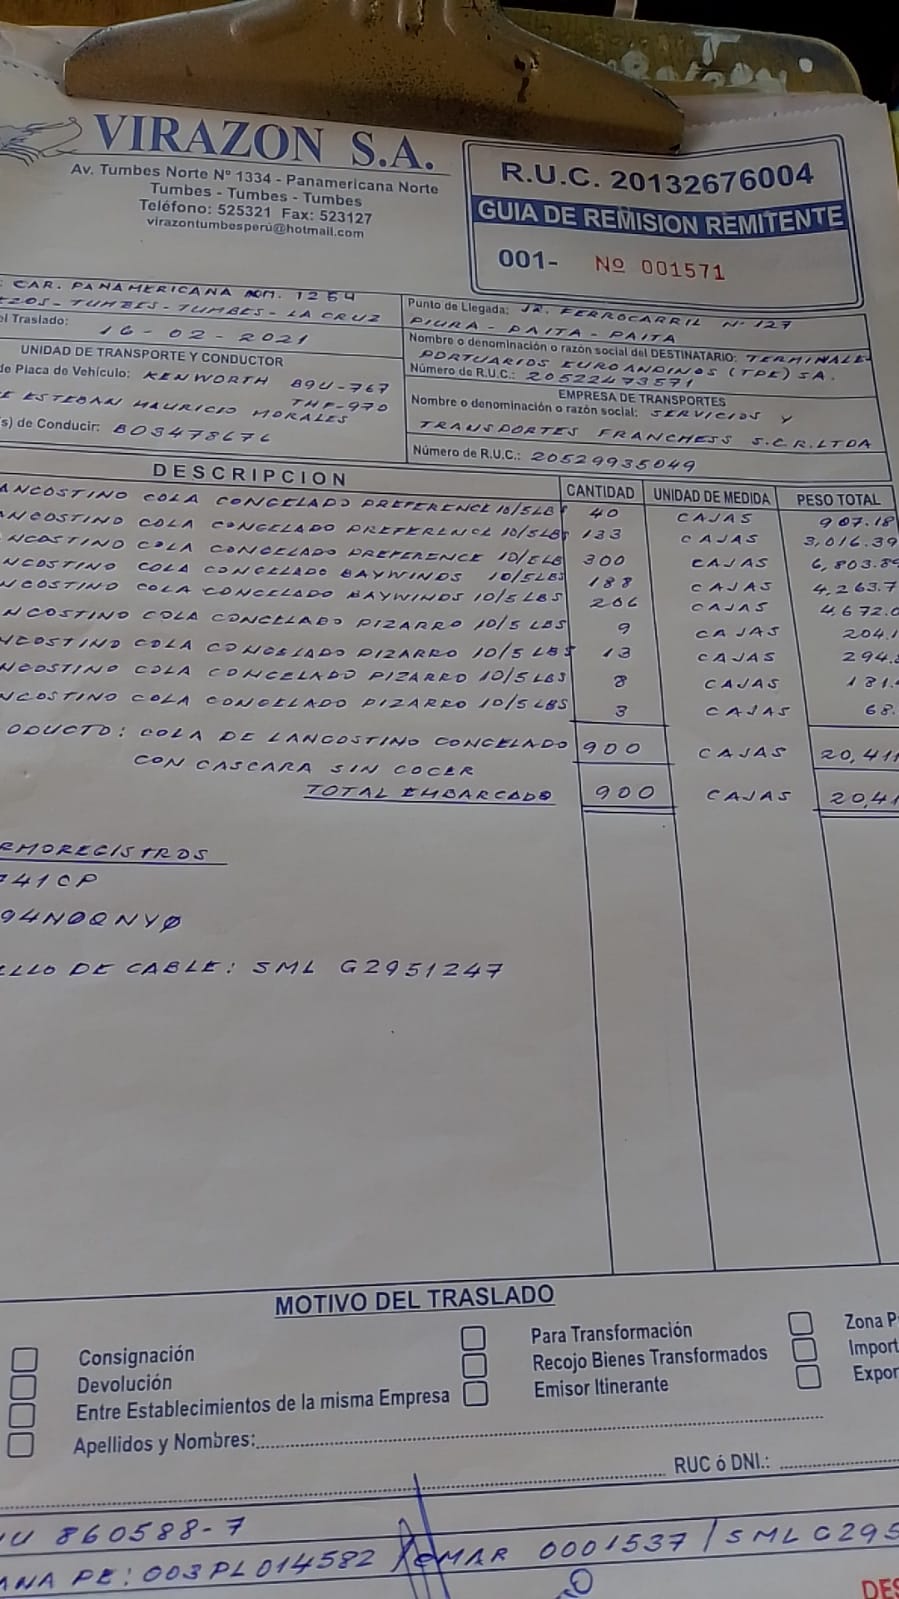 VIRAZON S.A.
Av. Tumbes Norte Nº 1334 - Panamericana Norte
Tumbes - Tumbes - Tumbes
Teléfono: 525321 Fax: 523127
virazontumbesperú@hotmail.com
R.U.C. 20132676004
GUIA DE REMISION REMITENTE
001- Nº 001571
CAR. PANAMERICANA KM. 1254
EZOS - TUMBES - TUMBES - LA CRUZ
Punto de Llegada: JR. FERROCARRIL Nº 127
PIURA - PAITA - PAITA
el Traslado: 16 - 02 - 2021
Nombre o denominación o razón social del DESTINATARIO: TERMINALE
PORTUARIOS EUROANDINOS (TPE) SA.
Número de R.U.C.: 20522473571
UNIDAD DE TRANSPORTE Y CONDUCTOR
de Placa de Vehículo: KENWORTH B9U-767
THF-970
E ESTEBAN MAURICIO MORALES
s) de Conducir: B03478676
EMPRESA DE TRANSPORTES
Nombre o denominación o razón social: SERVICIOS Y
TRANSPORTES FRANCHESS S.C.R.LTDA
Número de R.U.C.: 20529935049
DESCRIPCION CANTIDAD UNIDAD DE MEDIDA PESO TOTAL
ANGOSTINO COLA CONGELADO PREFERENCE 10/5LBS 40 CAJAS 907.18
ANGOSTINO COLA CONGELADO PREFERENCE 10/5LBS 133 CAJAS 3,016.39
NGOSTINO COLA CONGELADO PREFERENCE 10/5LB 300 CAJAS 6,803.89
NGOSTINO COLA CONGELADO BAYWINDS 10/5LBS 188 CAJAS 4,263.7
NGOSTINO COLA CONGELADO BAYWINDS 10/5LBS 206 CAJAS 4.672.0
NGOSTINO COLA CONGELADO PIZARRO 10/5 LBS 9 CAJAS 204.1
NGOSTINO COLA CONGELADO PIZARRO 10/5 LBS 13 CAJAS 294.
NGOSTINO COLA CONGELADO PIZARRO 10/5LBS 8 CAJAS 181.
NGOSTINO COLA CONGELADO PIZARRO 10/5LBS 3 CAJAS 68.
ODUCTO: COLA DE LANGOSTINO CONGELADO 900 CAJAS 20,411
CON CASCARA SIN COCER
TOTAL EMBARCADO 900 CAJAS 20,41
RMOREGISTROS
741CP
94NØQNYØ
ELLO DE CABLE: SML G2951247
MOTIVO DEL TRASLADO
Consignación Para Transformación Zona P
Devolución Recojo Bienes Transformados Import
Entre Establecimientos de la misma Empresa Emisor Itinerante Expor
Apellidos y Nombres:
RUC ó DNI.:
U 860588-7
ANA PE: 003PL014582 / OMAR 0001537 / SML G295
DES